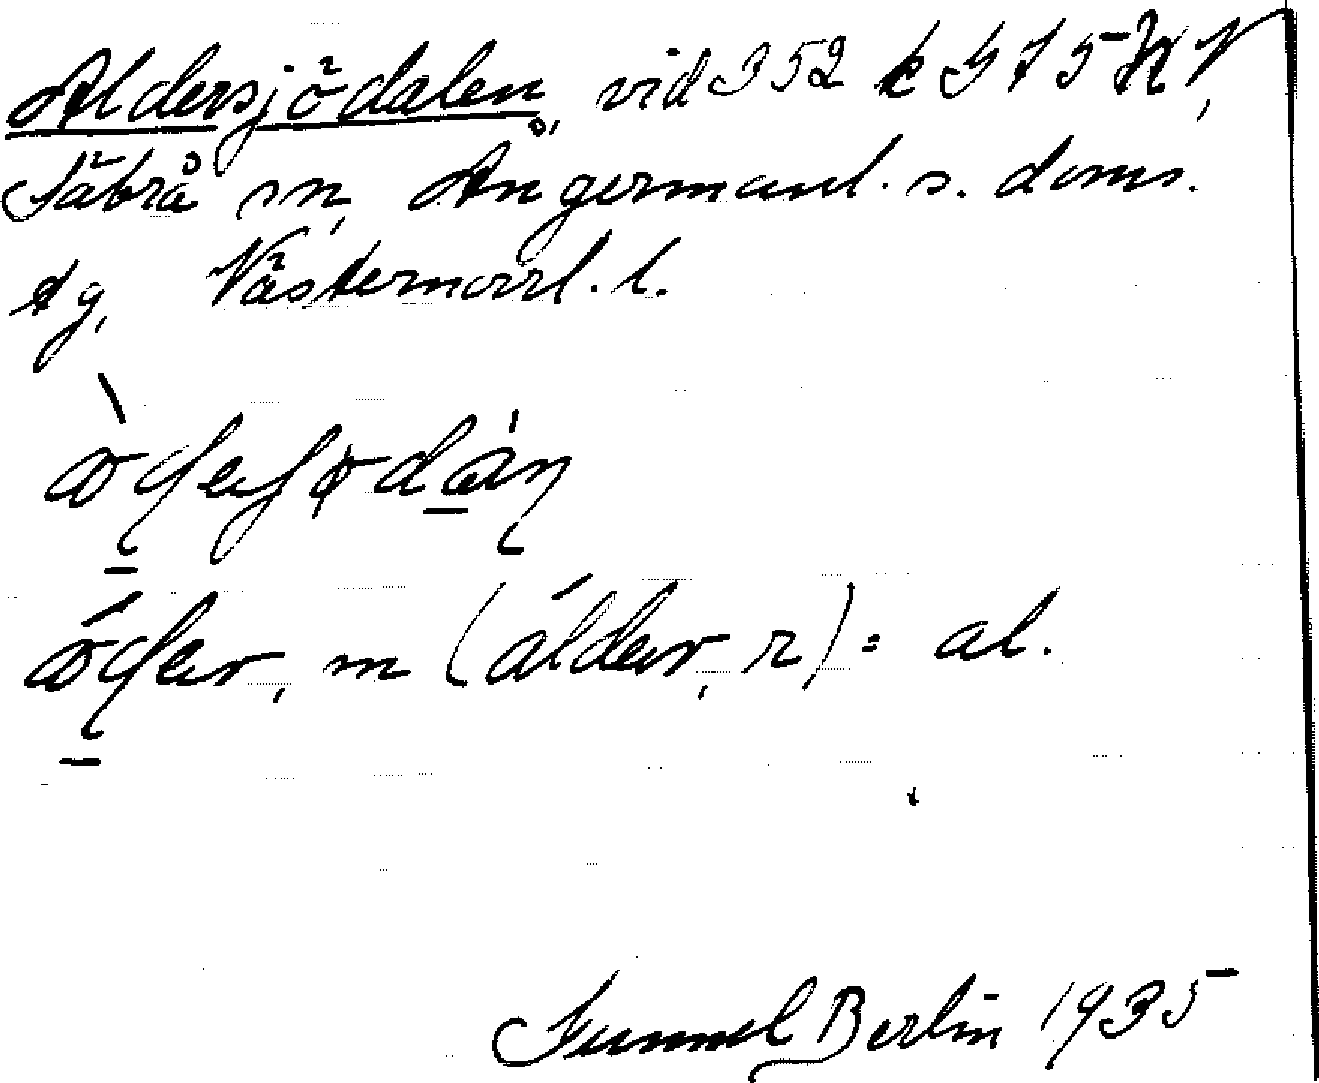 Aldersjödalen, vid 352 k G 7 5 NV,
Säbrå sn, Ångermanl. s. doms.
tg, Västernorrl. l.
m (álder, r) = al.
Gunnel Berlin 1935